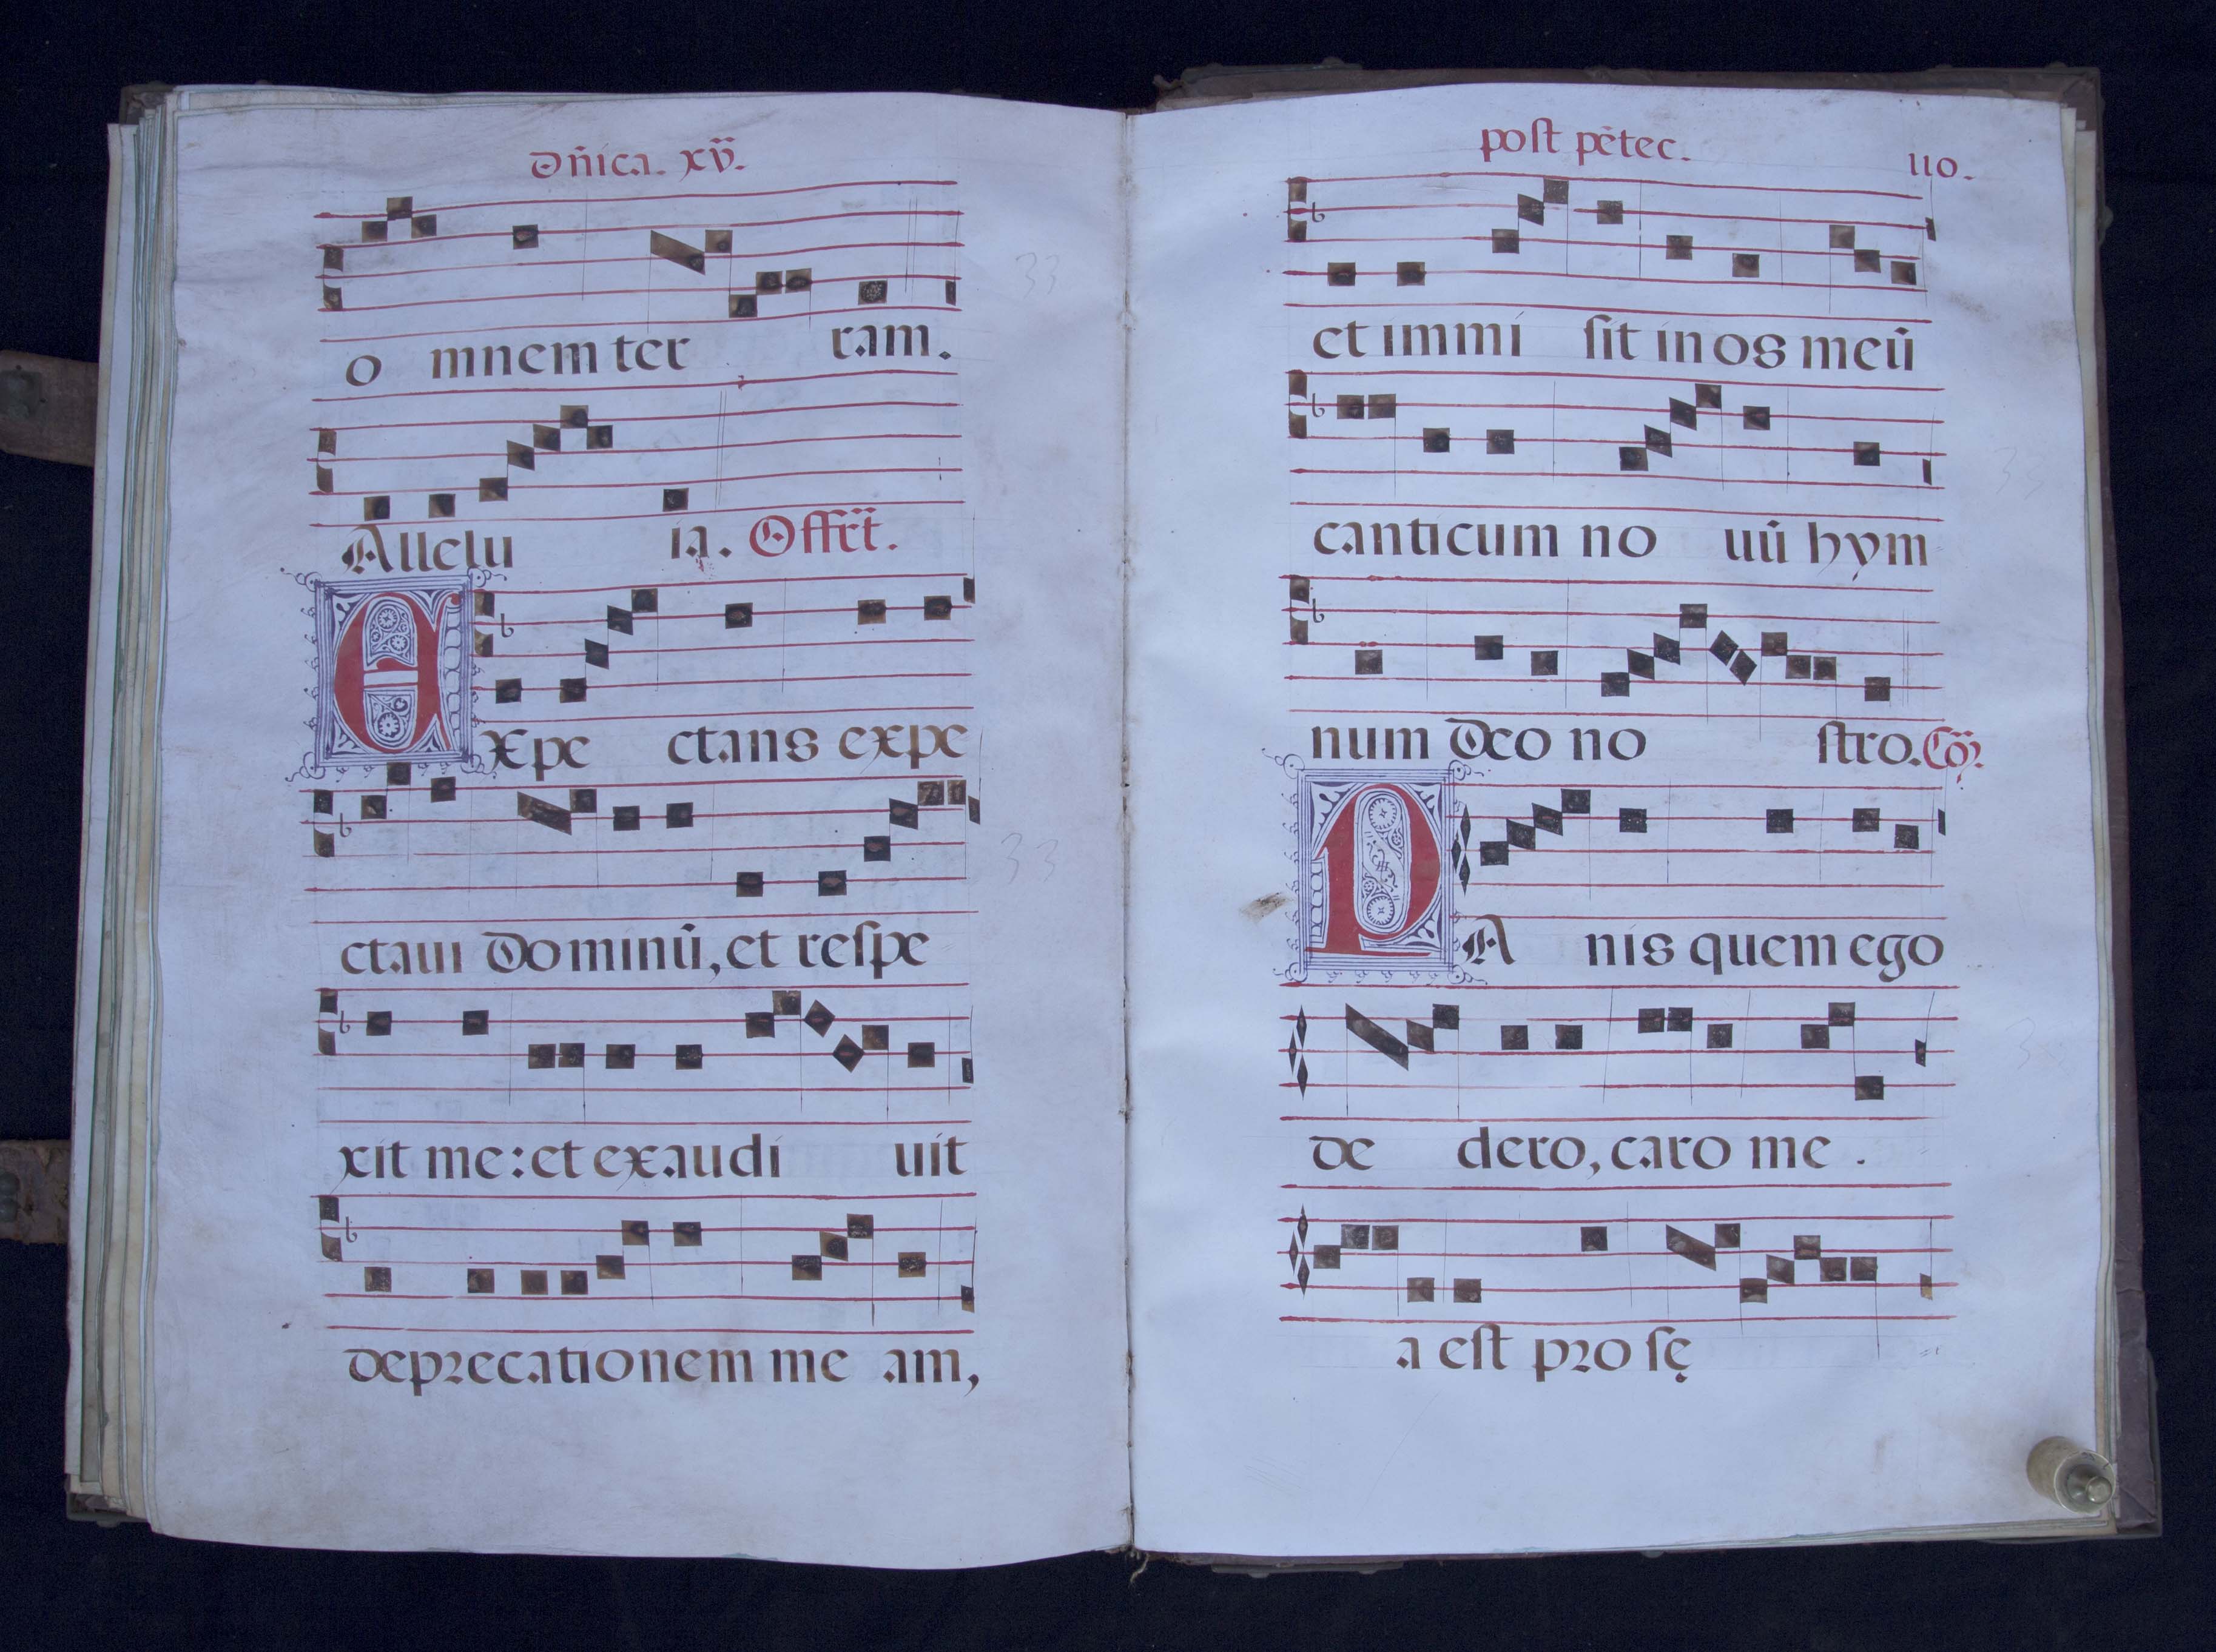 Dñica. xv.
33
o mnem ter ram.
Allelu ia. Offrt.
Expe ctans expe
33
ctaui Dominū, et reſpe
xit me: et exaudi uit
deprecationem me am,
poſt pētec. 110.
et immi ſit in os meū
33
canticum no uū hym
num Deo no ſtro. Cō.
PA nis quem ego
de dero, caro me .
a eſt pro ſę